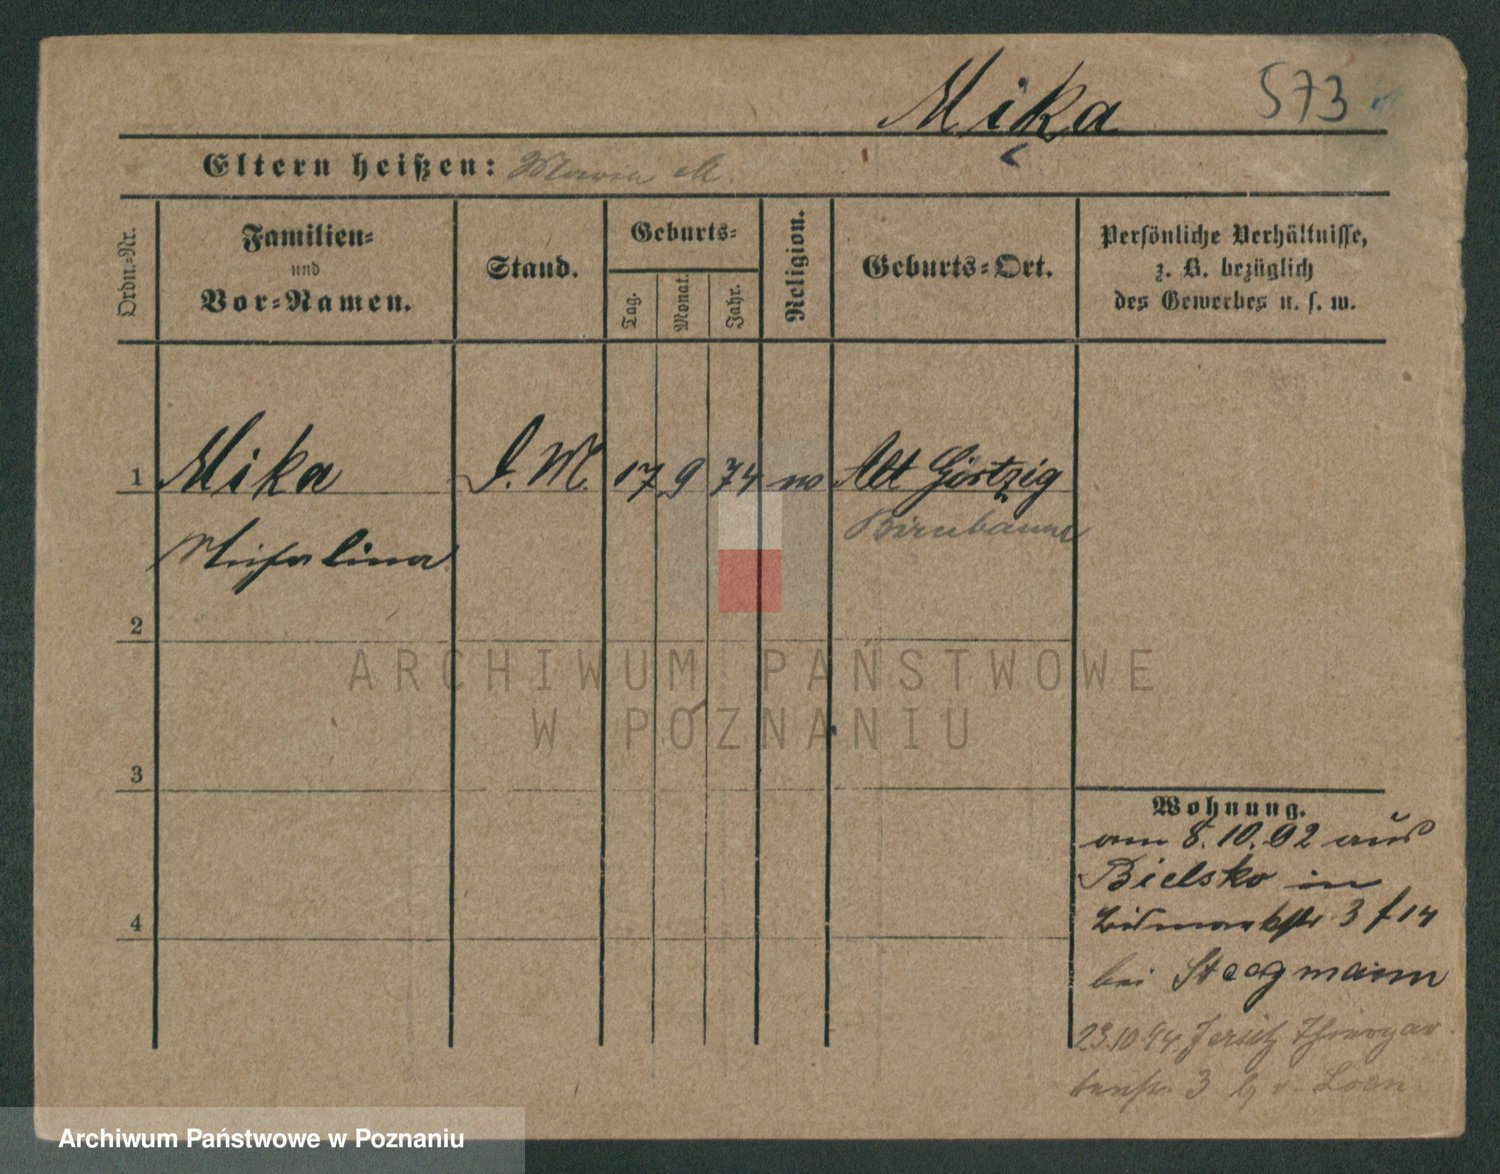 Mika 573
Eltern heißen:
Ordn.-Nr.
Familien-
und
Vor-Namen.
Stand.
Geburts-
Tag.
Monat.
Jahr.
Religion.
Geburts-Ort.
Persönliche Verhältnisse,
z. B. bezüglich
des Gewerbes u. s. w.
1 Mika D. M. 17 9 74 Alt Görtzig
Michalina Birnbaum
2
3
4
ARCHIWUM PAŃSTWOWE
W POZNANIU
Wohnung.
am 8.10.92 aus
Bielsko in
Bismarkstr 3 f 14
bei Steegmann
23.10.94. Jersitz Thiergar
tenstr. 3 b. v. Loen
Archiwum Państwowe w Poznaniu